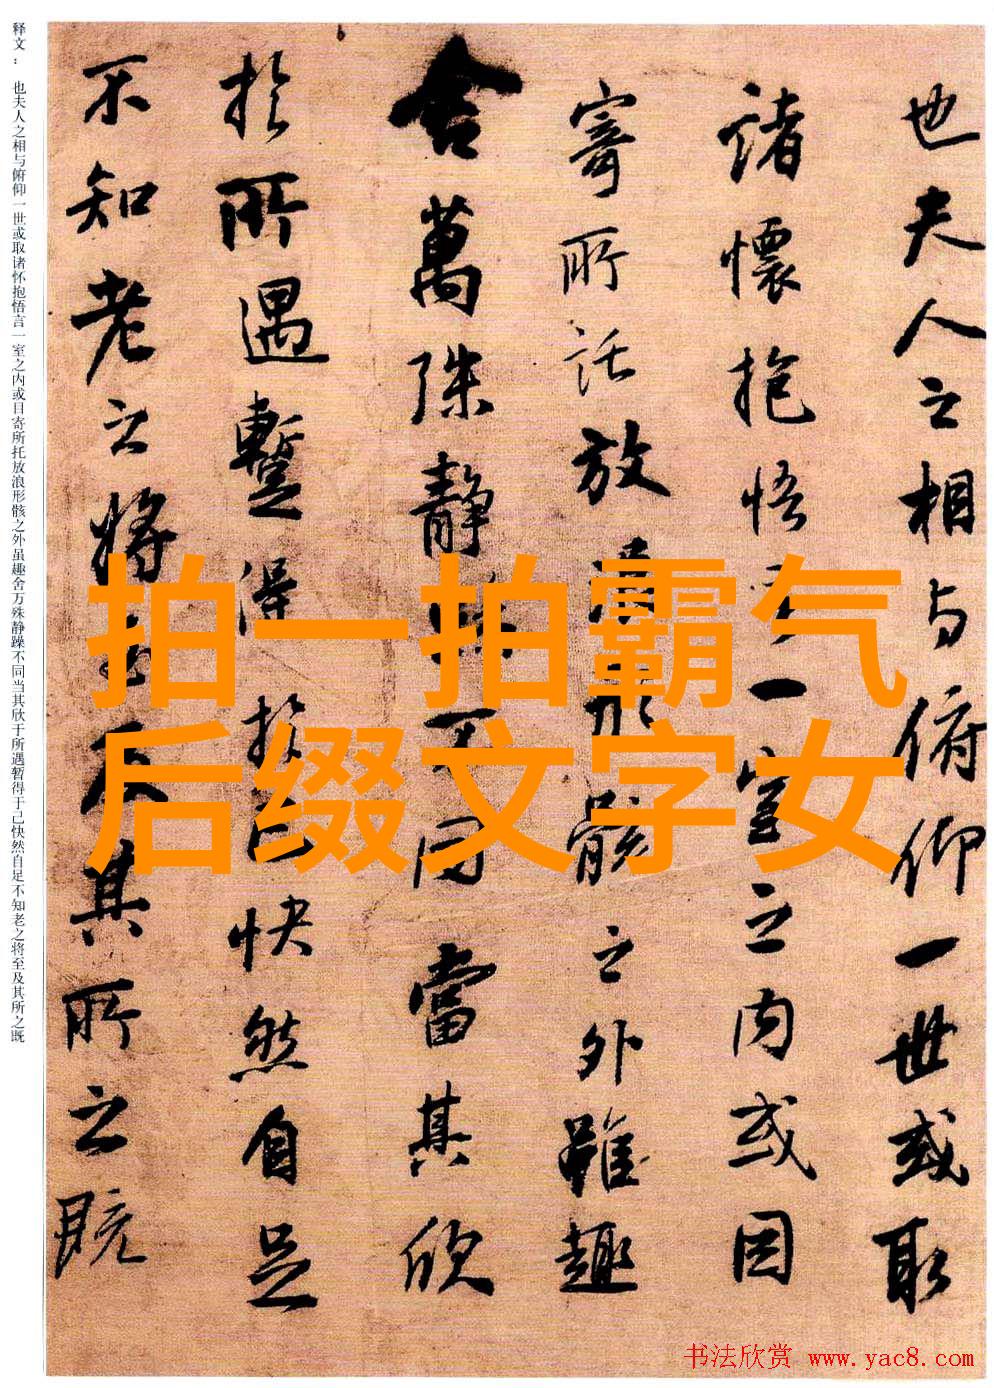 也夫人之相与俯仰一世或取
諸懷抱悟言一室之内或因
寄所託放浪形骸之外雖趣
舍萬殊静躁不同當其欣
於所遇蹔得於己快然自足
不知老之將至及其所之既
释文：也夫人之相与俯仰一世或取诸怀抱悟言一室之内或目寄所托放浪形骸之外虽趣舍万殊静躁不同当其欣于所遇暂得于己快然自足不知老之将至及其所之既
拍一拍霸气
后缀文字女
书法欣赏 www.yac8.com